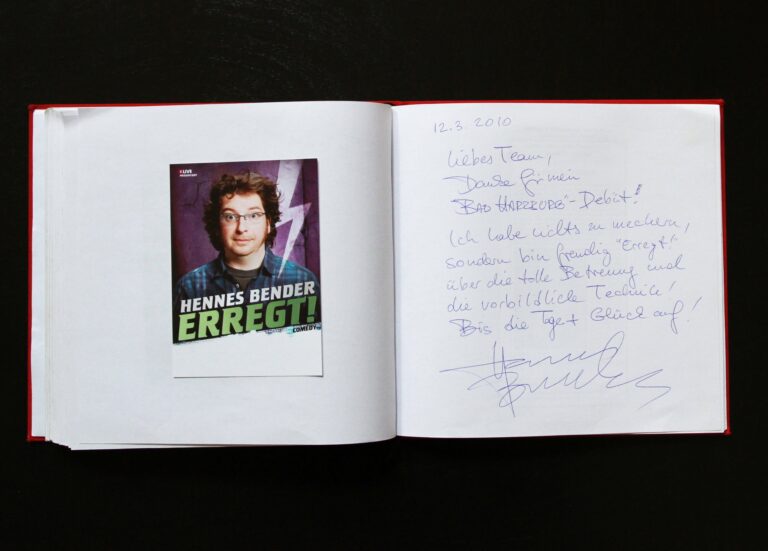 LIVE
HENNES BENDER
ERREGT!
COMEDY
12.3.2010
Liebes Team,
Danke für mein
BAD HARZBURG-Debüt!
Ich habe nichts zu meckern,
sondern bin freudig "Erregt"
über die tolle Betreuung und
die vorbildliche Technik!
Bis die Tage + Glück auf!
Hennes
Bender